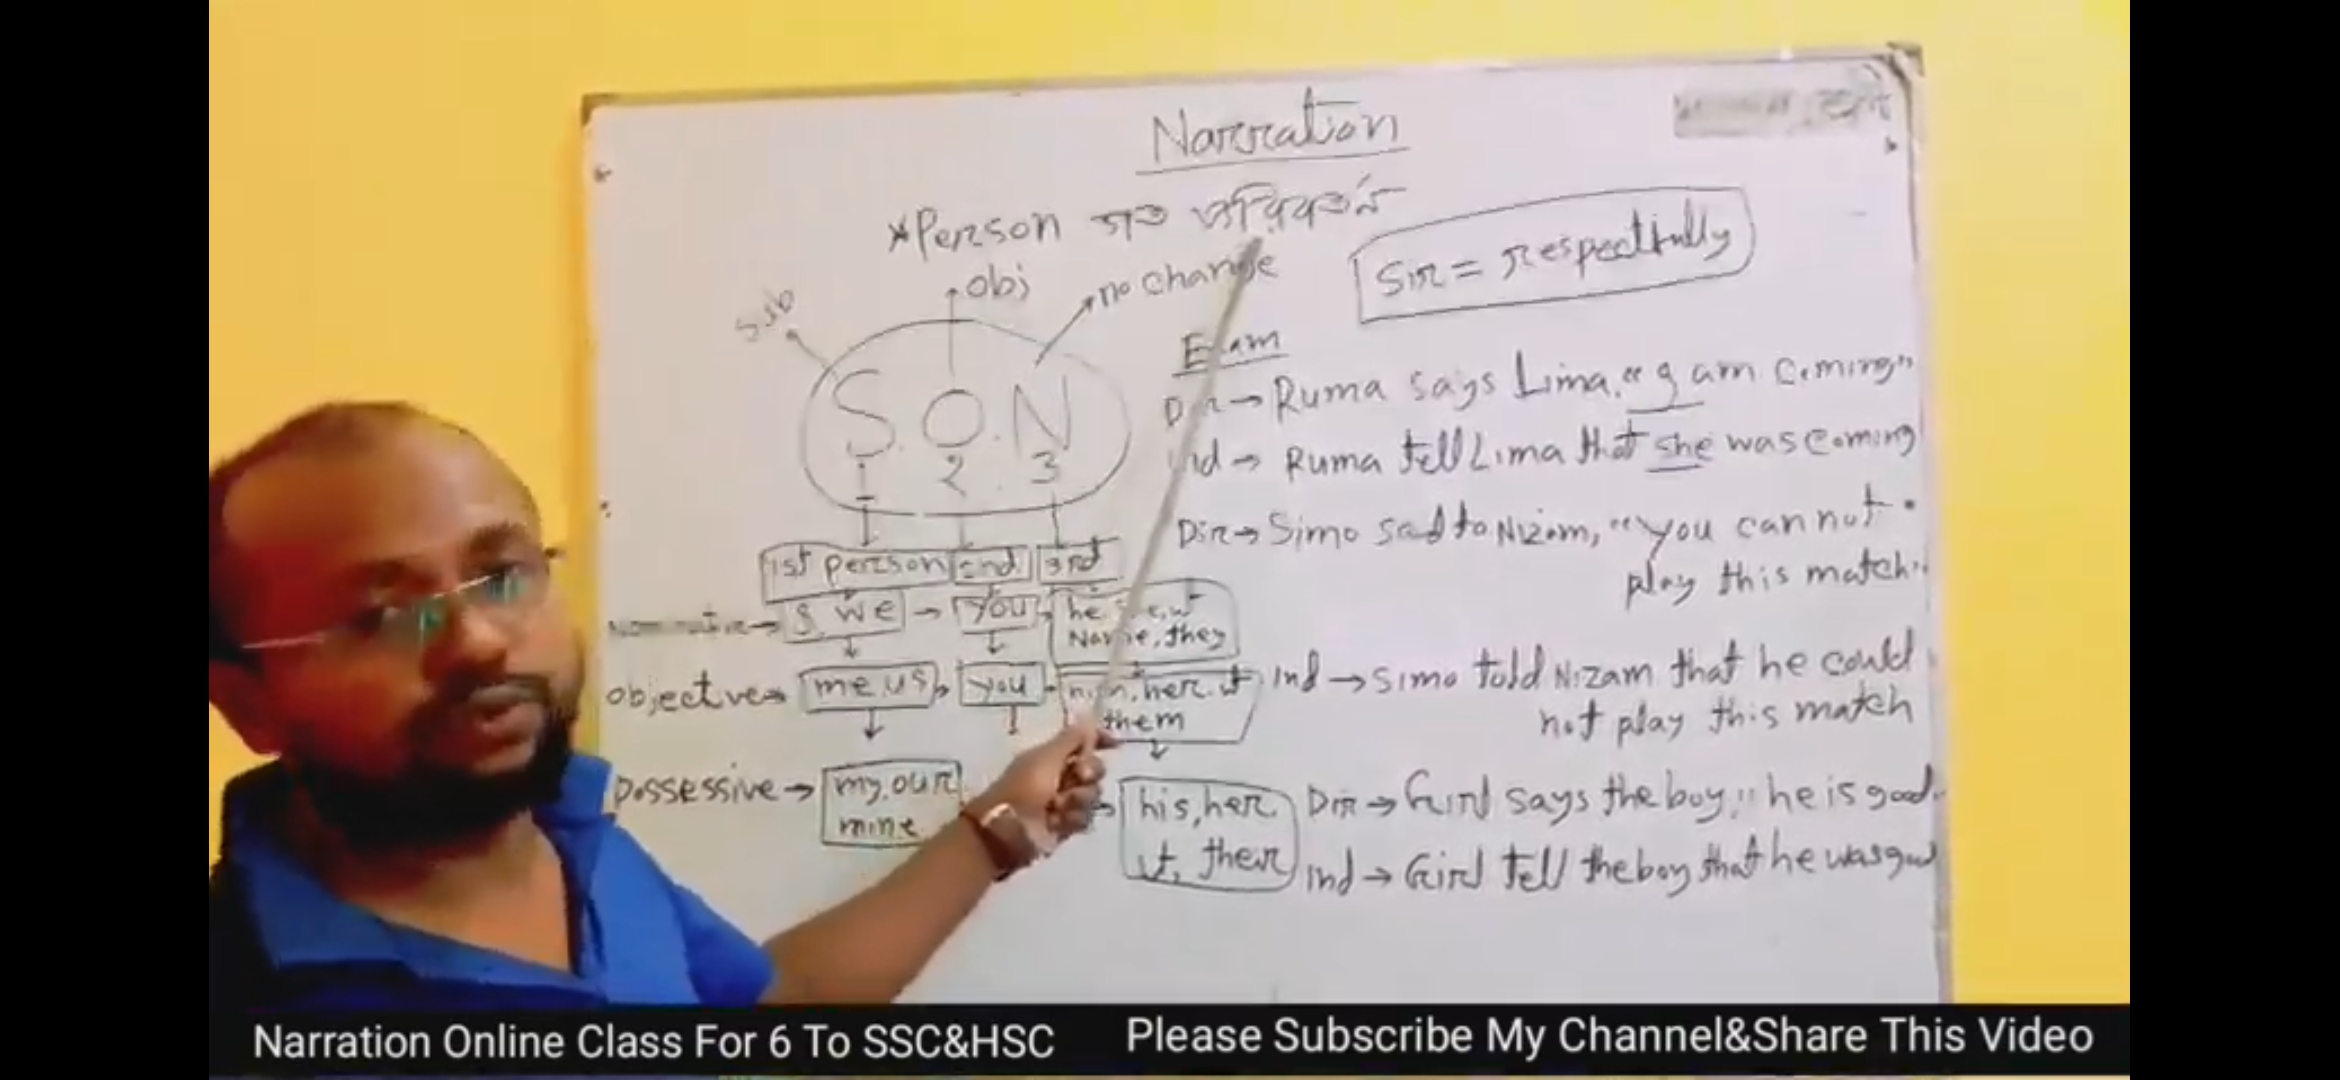 Narration
*Person গত পরিবর্তন
Sir = respectfully
sub
obj
no change
S.O.N
1 2 3
1st person 2nd 3rd
Nominative → I, we → you he she, it
Name, they
objective → me, us, you him, her, it
them
possessive → my, our his, her
mine it, their
Exam
Dir → Ruma says Lima, "I am coming"
Ind → Ruma tell Lima that she was coming
Dir → Simo said to Nizam, "you can not
play this match.
Ind → Simo told Nizam that he could
not play this match
Dir → Girl says the boy, "he is good.
Ind → Girl tell the boy that he was good
Narration Online Class For 6 To SSC&HSC Please Subscribe My Channel&Share This Video